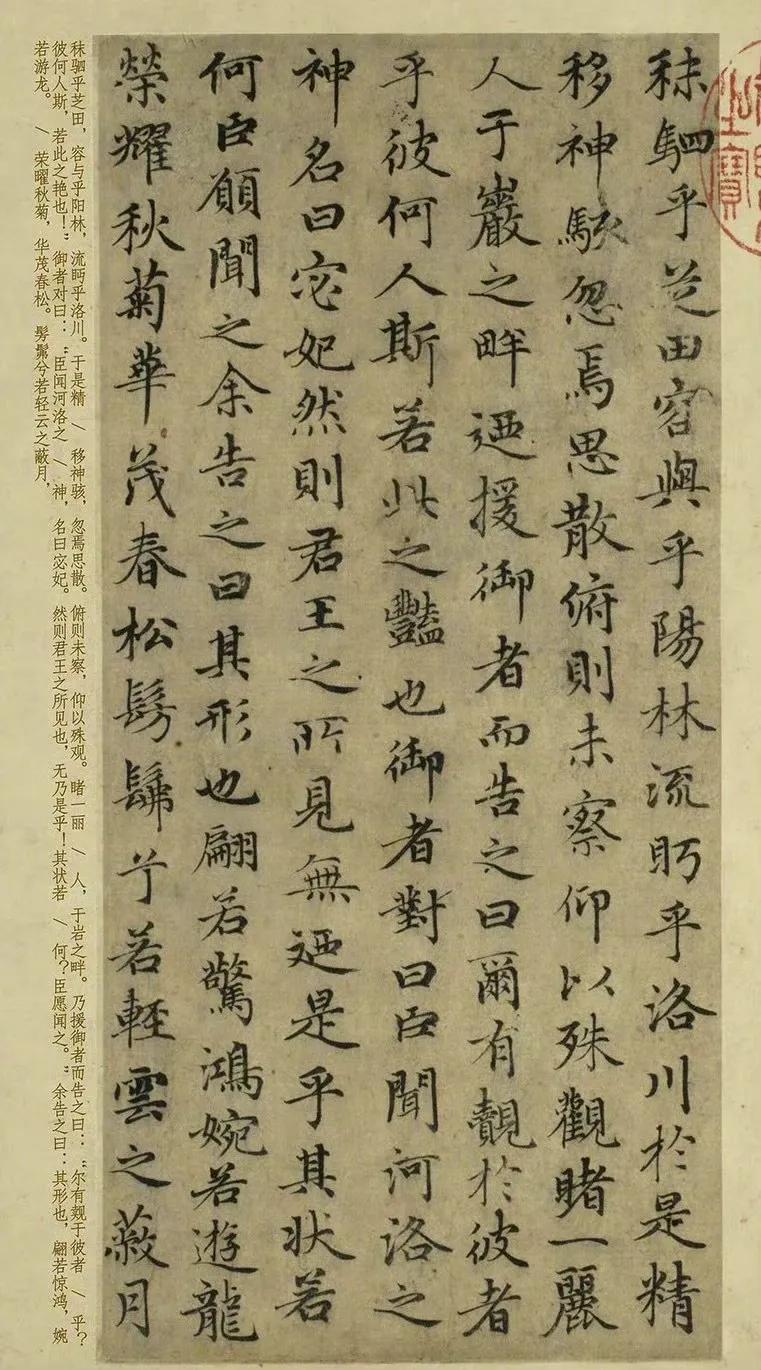 秣駟乎芝田容與乎陽林流眄乎洛川於是精
移神駭忽焉思散俯則未察仰以殊觀睹一麗
人于巖之畔迺援御者而告之曰爾有覿於彼者
乎彼何人斯若此之豔也御者對曰臣聞河洛之
神名曰宓妃然則君王之所見無迺是乎其狀若
何臣願聞之余告之曰其形也翩若驚鴻婉若遊龍
榮耀秋菊華茂春松髣髴兮若輕雲之蔽月
秣驷乎芝田，容与乎阳林，流眄乎洛川。于是精 \ 移神骇，忽焉思散。俯则未察，仰以殊观。睹一丽 \ 人，于岩之畔。乃援御者而告之曰：“尔有觌于彼者 \ 乎？
彼何人斯，若此之艳也！”御者对曰：“臣闻河洛之 \ 神，名曰宓妃。然则君王之所见也，无乃是乎！其状若 \ 何？臣愿闻之。”余告之曰：其形也，翩若惊鸿，婉
若游龙。 \ 荣曜秋菊，华茂春松。髣髴兮若轻云之蔽月，
寶